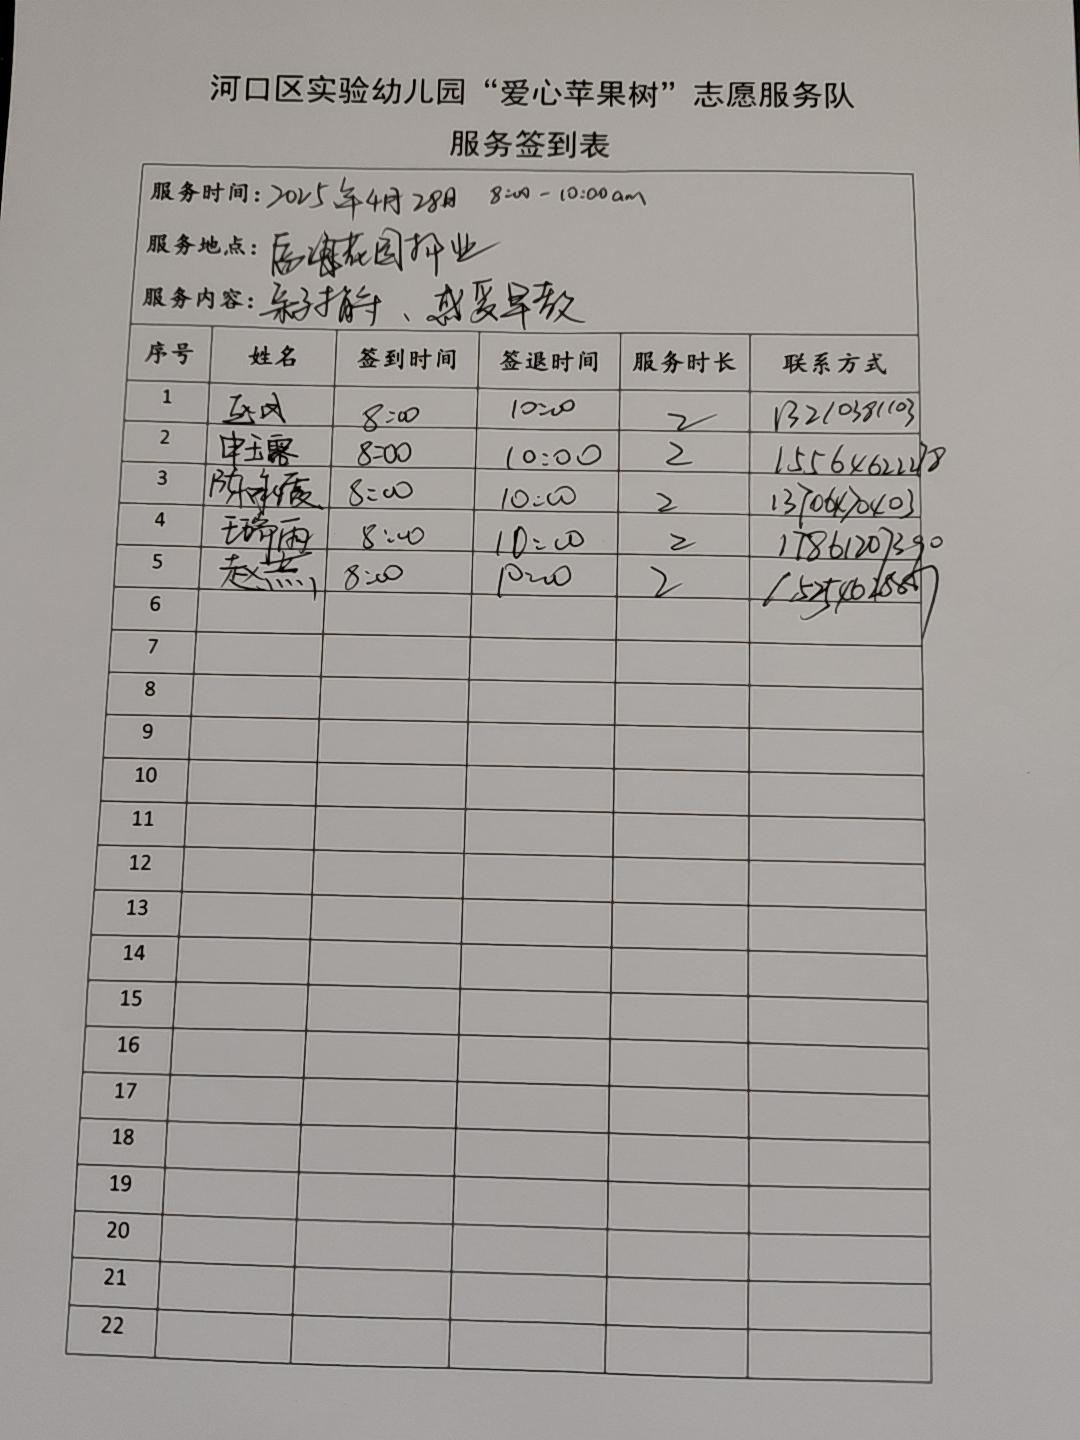 河口区实验幼儿园“爱心苹果树”志愿服务队
服务签到表
服务时间：2025年4月28日 8:00-10:00am
服务地点：花园押业
服务内容：亲子、感受早教
序号 姓名 签到时间 签退时间 服务时长 联系方式
1 8:00 10:00 2 13210381103
2 申玉露 8:00 10:00 2 155646222
3 陈 8:00 10:00 2 13706470403
4 王瑞雨 8:00 10:00 2 17861207390
5 赵燕 8:00 10:00 2
6
7
8
9
10
11
12
13
14
15
16
17
18
19
20
21
22